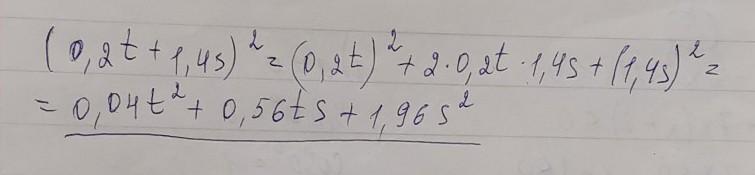 (0,2t + 1,4s)² = (0,2t)² + 2·0,2t·1,4s + (1,4s)² =
= 0,04t² + 0,56ts + 1,96s²